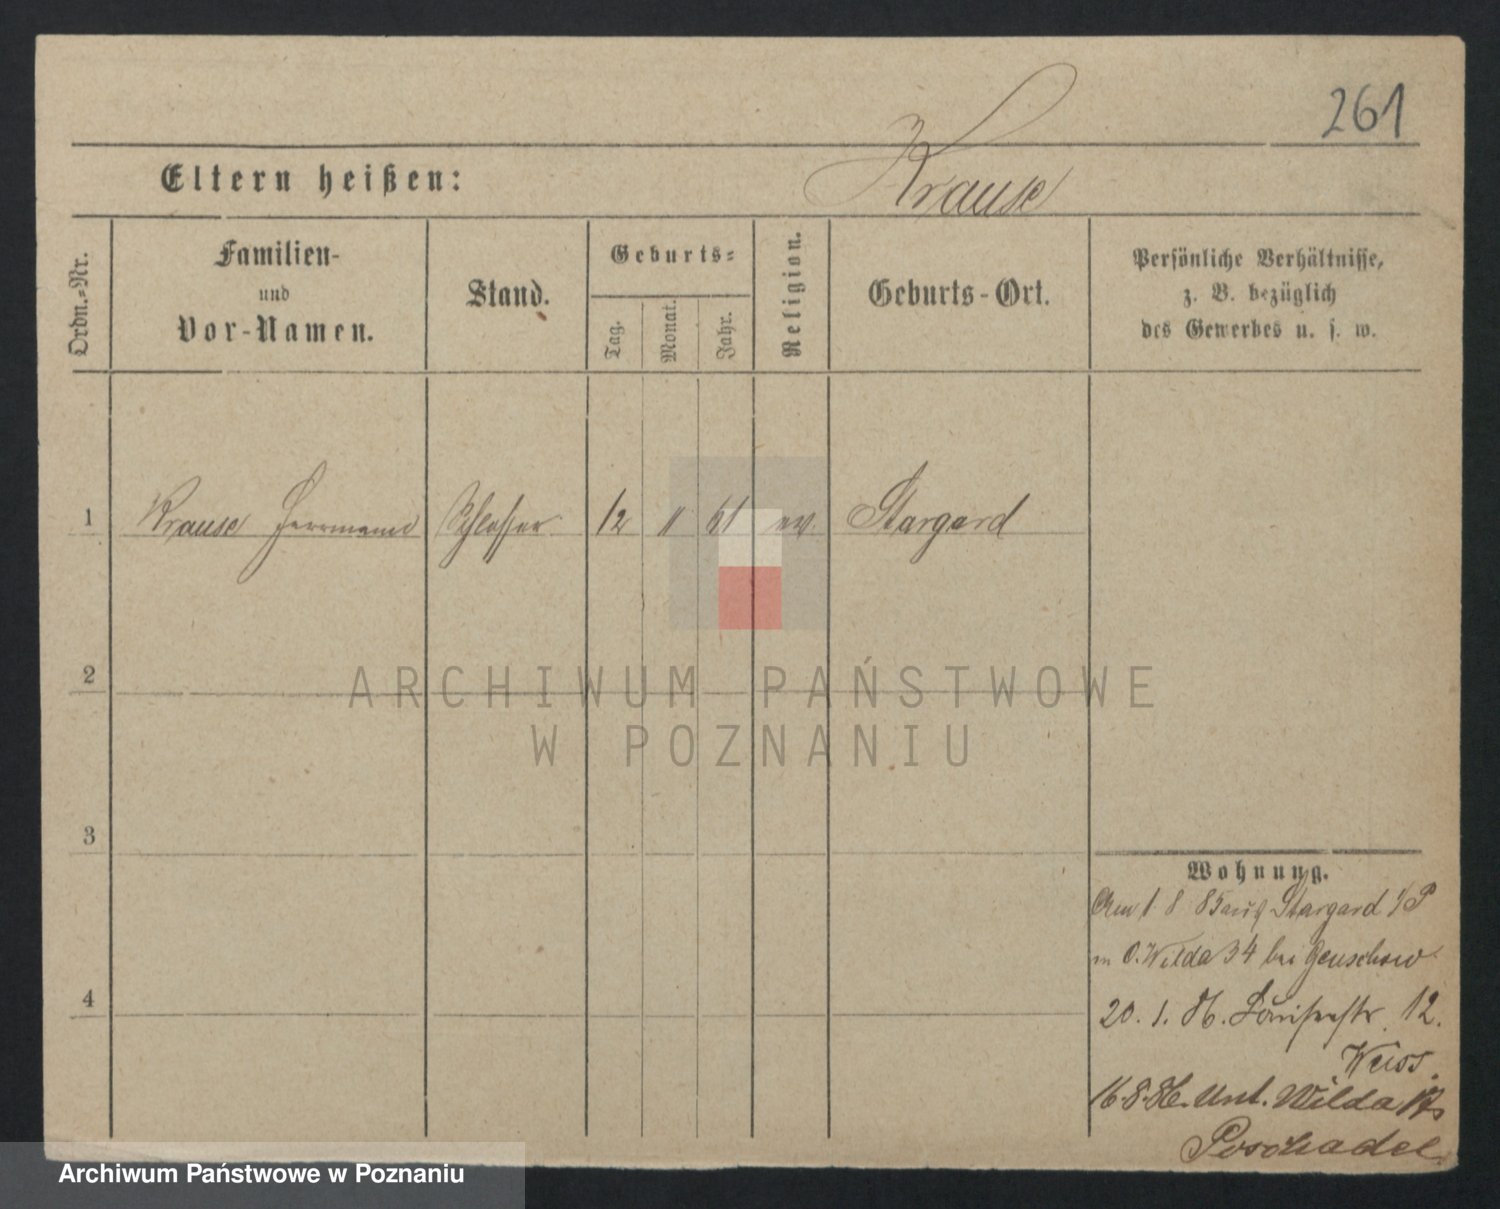 261
Eltern heißen:
Krause
Ordn.=Nr.
Familien-
und
Vor-Namen.
Stand.
Geburts=
Tag.
Monat.
Jahr.
Religion.
Geburts-Ort.
Persönliche Verhältnisse,
z. B. bezüglich
des Gewerbes u. s. w.
1 Krause Herrmann Schlosser 12 11 61 ev. Stargard
2
ARCHIWUM PAŃSTWOWE
W POZNANIU
3
Wohnung.
Am 1 8 85 aus Stargard i/P
in O. Wilda 34 bei Genschow
4
20. 1. 86. Louisenstr. 12.
Weiss.
16.8.86. Unt. Wilda
Poschadel
Archiwum Państwowe w Poznaniu